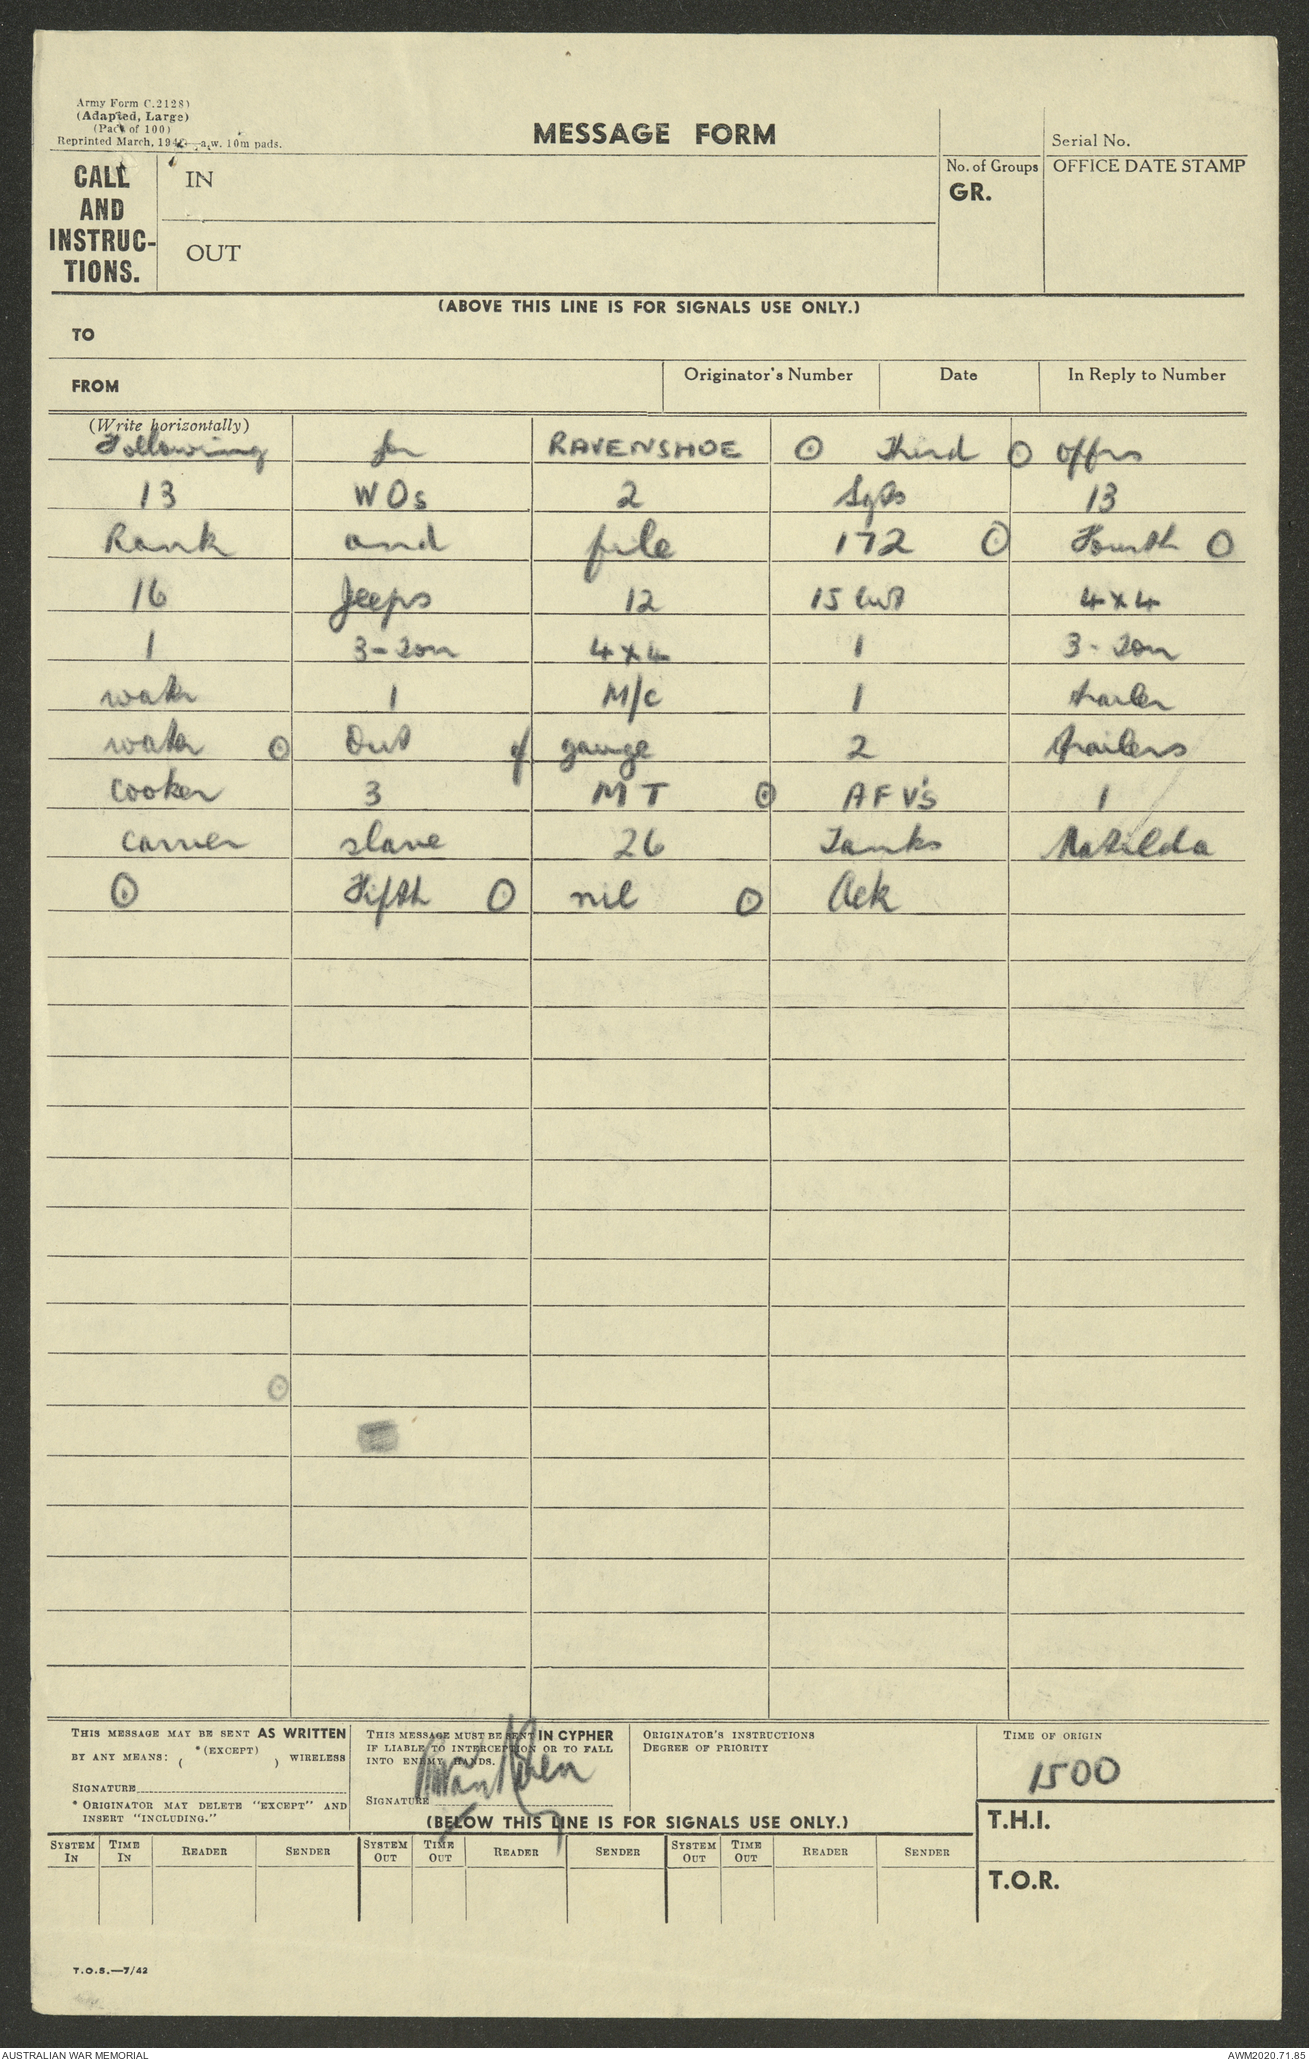 Army Form C.2128)
(Adapted, Large)
(Pack of 100)
Reprinted March, 194 a.w. 10m pads.
MESSAGE FORM
Serial No.
CALL AND INSTRUC- TIONS.
IN
No. of Groups
GR.
OFFICE DATE STAMP
OUT
(ABOVE THIS LINE IS FOR SIGNALS USE ONLY.)
TO
FROM
Originator's Number
Date
In Reply to Number
(Write horizontally)
Following for RAVENSHOE ⊙ Third ⊙ offrs
13 WOs 2 Sgts 13
Rank and file 172 ⊙ Fourth ⊙
16 Jeeps 12 15 cwt 4x4
1 3-ton 4x4 1 3-ton
water 1 M/c 1 trailer
water ⊙ Out of gauge 2 trailers
cooker 3 MT ⊙ AFV's 1
carrier slave 26 Tanks Matilda
⊙ Fifth ⊙ nil ⊙ Ack
⊙
THIS MESSAGE MAY BE SENT AS WRITTEN
BY ANY MEANS: ( *(EXCEPT) ) WIRELESS
SIGNATURE
* ORIGINATOR MAY DELETE "EXCEPT" AND
INSERT "INCLUDING."
THIS MESSAGE MUST BE SENT IN CYPHER
IF LIABLE TO INTERCEPTION OR TO FALL
INTO ENEMY HANDS.
SIGNATURE
ORIGINATOR'S INSTRUCTIONS
DEGREE OF PRIORITY
TIME OF ORIGIN
1500
(BELOW THIS LINE IS FOR SIGNALS USE ONLY.)
T.H.I.
SYSTEM IN TIME IN READER SENDER SYSTEM OUT TIME OUT READER SENDER SYSTEM OUT TIME OUT READER SENDER
T.O.R.
T.O.S.—7/42
AUSTRALIAN WAR MEMORIAL
AWM2020.71.85